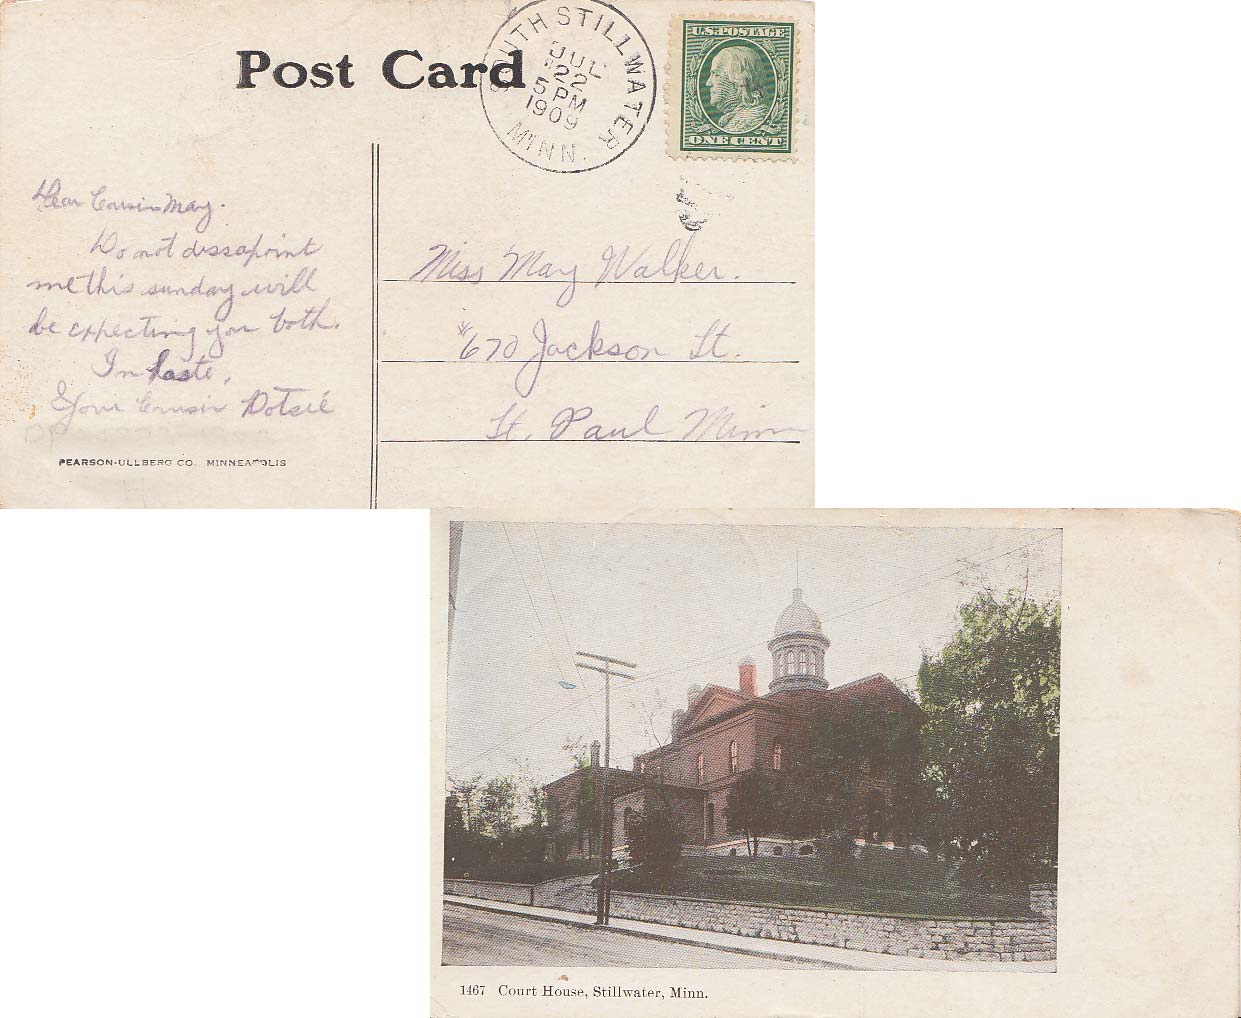 Post Card
SOUTH STILLWATER
JUL
22
5 PM
1909
MINN.
U.S. POSTAGE
ONE CENT
Dear Cousin May.
Do not dissapoint
me this sunday will
be expecting you both.
In haste,
Your Cousin Dotsie
Miss May Walker.
#670 Jackson St.
St. Paul Minn
PEARSON-ULLBERG CO. MINNEAPOLIS
1467 Court House, Stillwater, Minn.